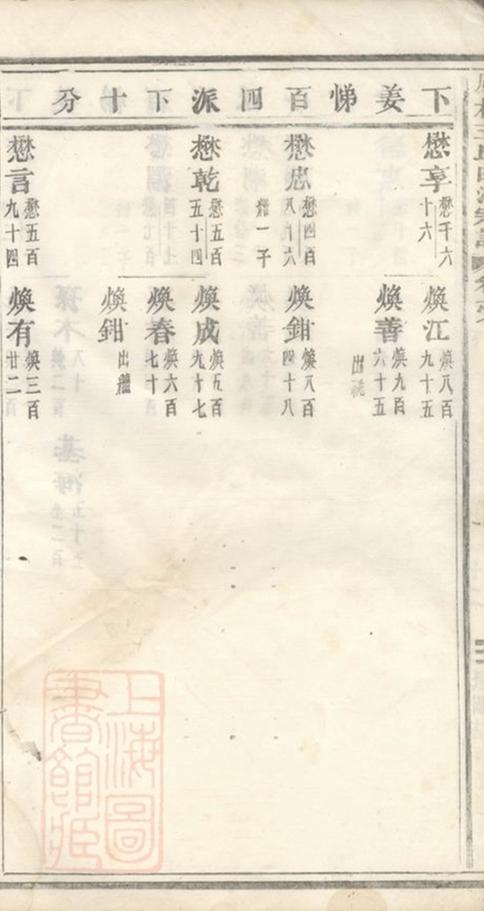 下姜悌百四派下十分
懋享 懋千六十六
煥江 煥八百九十五
煥善 煥九百六十五 出祧
懋忠 懋四百八九六 繼一子
煥鉗 煥八百四十八
懋乾 懋五百五十四
煥成 煥五百九十七
煥春 煥六百七十
煥鉗 出繼
懋言 懋五百九十四
煥有 煥三百廿二
上海圖書館藏